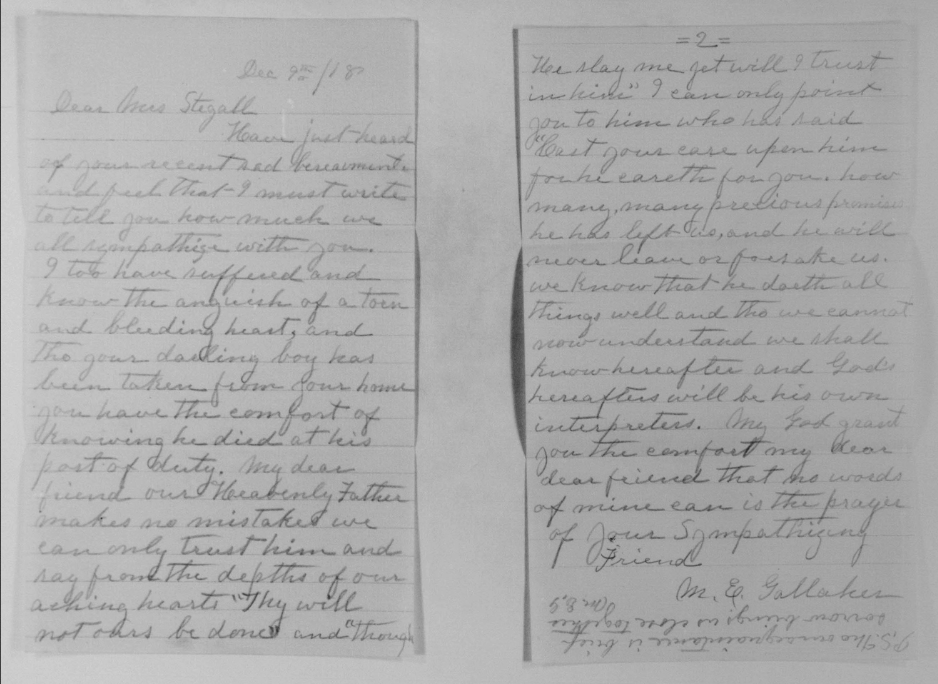 Dec 9th/18
Dear Mrs Stegall
Have just heard
of your recent sad bereavement
and feel that I must write
to tell you how much we
all sympathize with you.
I too have suffered and
know the anguish of a torn
and bleeding heart, and
tho your darling boy has
been taken from your home
you have the comfort of
knowing he died at his
post of duty. My dear
friend our Heavenly Father
makes no mistakes we
can only trust him and
say from the depths of our
aching hearts "Thy will
not ours be done" and "though
=2=
He slay me yet will I trust
in him" I can only point
you to him who has said
"Cast your care upon him
for he careth for you. how
many, many precious promises
he has left us, and he will
never leave or forsake us.
we know that he doeth all
things well and tho we cannot
now understand we shall
know hereafter and God's
hereafters will be his own
interpreters. May God grant
you the comfort my dear
dear friend that no words
of mine can is the prayer
of your Sympathizing
Friend
M. E. Gallaher
P.S. Tho our acquaintance is brief
sorrow brings us close together